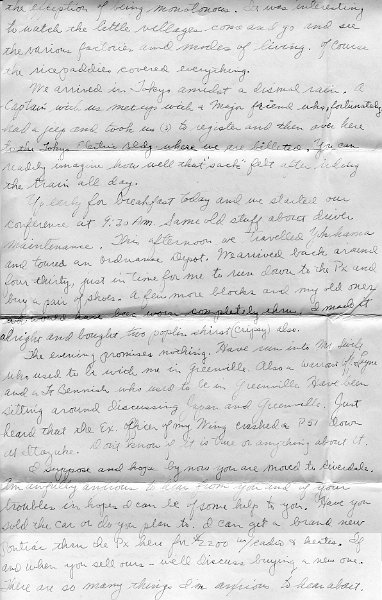 the exception of being monotonous. It was interesting
to watch the little villages come and go and see
the various factories and modes of living. Of course
the rice paddies covered everything.
We arrived in Tokyo amidst a dismal rain. A
Captain with us met up with a Major friend who fortunately
had a jeep and took us (2) to register and then over here
to the Tokyo Bldg where we are billeted. You can
easily imagine how well that "sack" felt after riding
the train all day.
Up early for breakfast today and we started our
conference at 9:30 AM. Same old stuff about
Maintenance. This afternoon we travelled Yokohama
and toured an Ordnance Depot. We arrived back around
four thirty, just in time for me to run down to the Px and
buy a pair of shoes. A few more blocks and my old ones
would have been worn completely thru. I made it
alright and bought two poplin shirts (Crispy) also.
The evening promises nothing. Have run into Mr.
who used to be with me in Greenville. Also a
and a Lt Bennish who used to be in Greenville. Have been
sitting around discussing Japan and Greenville. Just
heard that the Ex. Officer of my Wing crashed a P51 down
at Itazuke. Don't know if it is true or anything about it.
I suppose and hope by now you are moved to Riverdale.
Am awfully anxious to hear from you and of your
troubles in hopes I can be of some help to you. Have you
sold the car or do you plan to. I can get a brand new
Pontiac thru the Px here for $2200 w/radio & heater. If
and when you sell ours - we'll discuss buying a new one.
There are so many things I'm anxious to hear about.